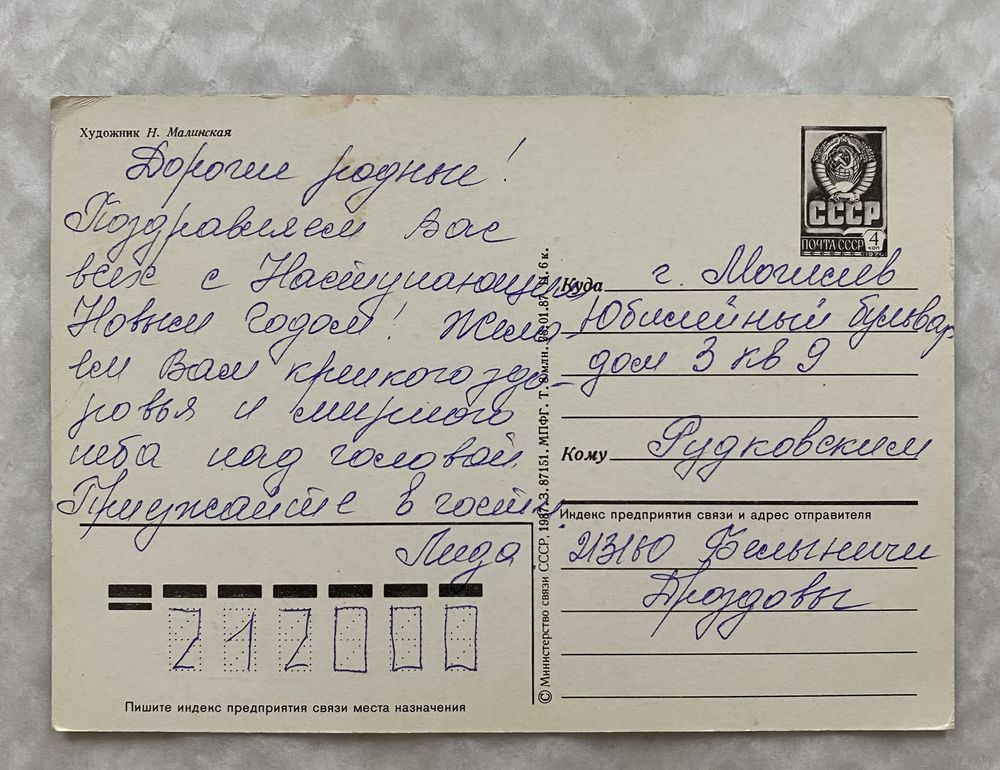 Художник Н. Малинская
Дорогие родные!
Поздравляем Вас
всех с Наступающим
Новым Годом! Жела-
ем Вам крепкого здо-
ровья и мирного
неба над головой.
Приужайте в гости.
Лида
212000
Пишите индекс предприятия связи места назначения
© Министерство связи СССР, 1987. З. 87151. МПФГ. Т. 8 млн. 28.01.87. Ц. 6 к.
СССР
ПОЧТА СССР 4 КОП
Куда г. Могилев
Юбилейный бульвар
дом 3 кв 9
Кому Рудковским
Индекс предприятия связи и адрес отправителя
213160 Белыничи
Дроздовы